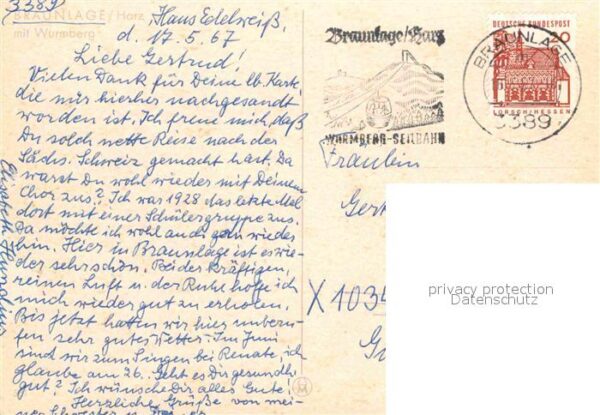 3389
BRAUNLAGE / Harz
mit Wurmberg
Haus Edelweiß,
d. 17.5.67
Liebe Gertrud!
Vielen Dank für Deine lb. Karte,
die mir hierher nachgesandt
worden ist. Ich freue mich, daß
Du solch nette Reise nach der
Sächs. Schweiz gemacht hast. Da
warst Du wohl wieder mit Deinem
Chor zus.? Ich war 1928 das letzte Mal
dort mit einer Schülergruppe zus.
Da möchte ich wohl auch gern wieder
hin. Hier in Braunlage ist es wie-
der sehr schön. Bei der kräftigen,
reinen Luft u. der Ruhe hoffe ich
mich wieder gut zu erholen.
Bis jetzt hatten wir hier unberu-
fen sehr gutes Wetter. Im Juni
sind wir zum Singen bei Renate, ich
glaube am 26. Geht es Dir gesundhl.
gut? Ich wünsche Dir alles Gute!
Herzliche Grüße von mei-
ner Schwester u.
Elisabeth
Braunlage/Harz
WURMBERG-SEILBAHN
BRAUNLAGE
3389
DEUTSCHE BUNDESPOST
20
LORSCH/HESSEN
Fräulein
Gert
X 1034
G
privacy protection
Datenschutz